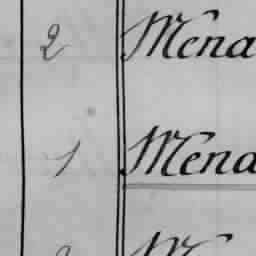 2 Mena
1 Mena